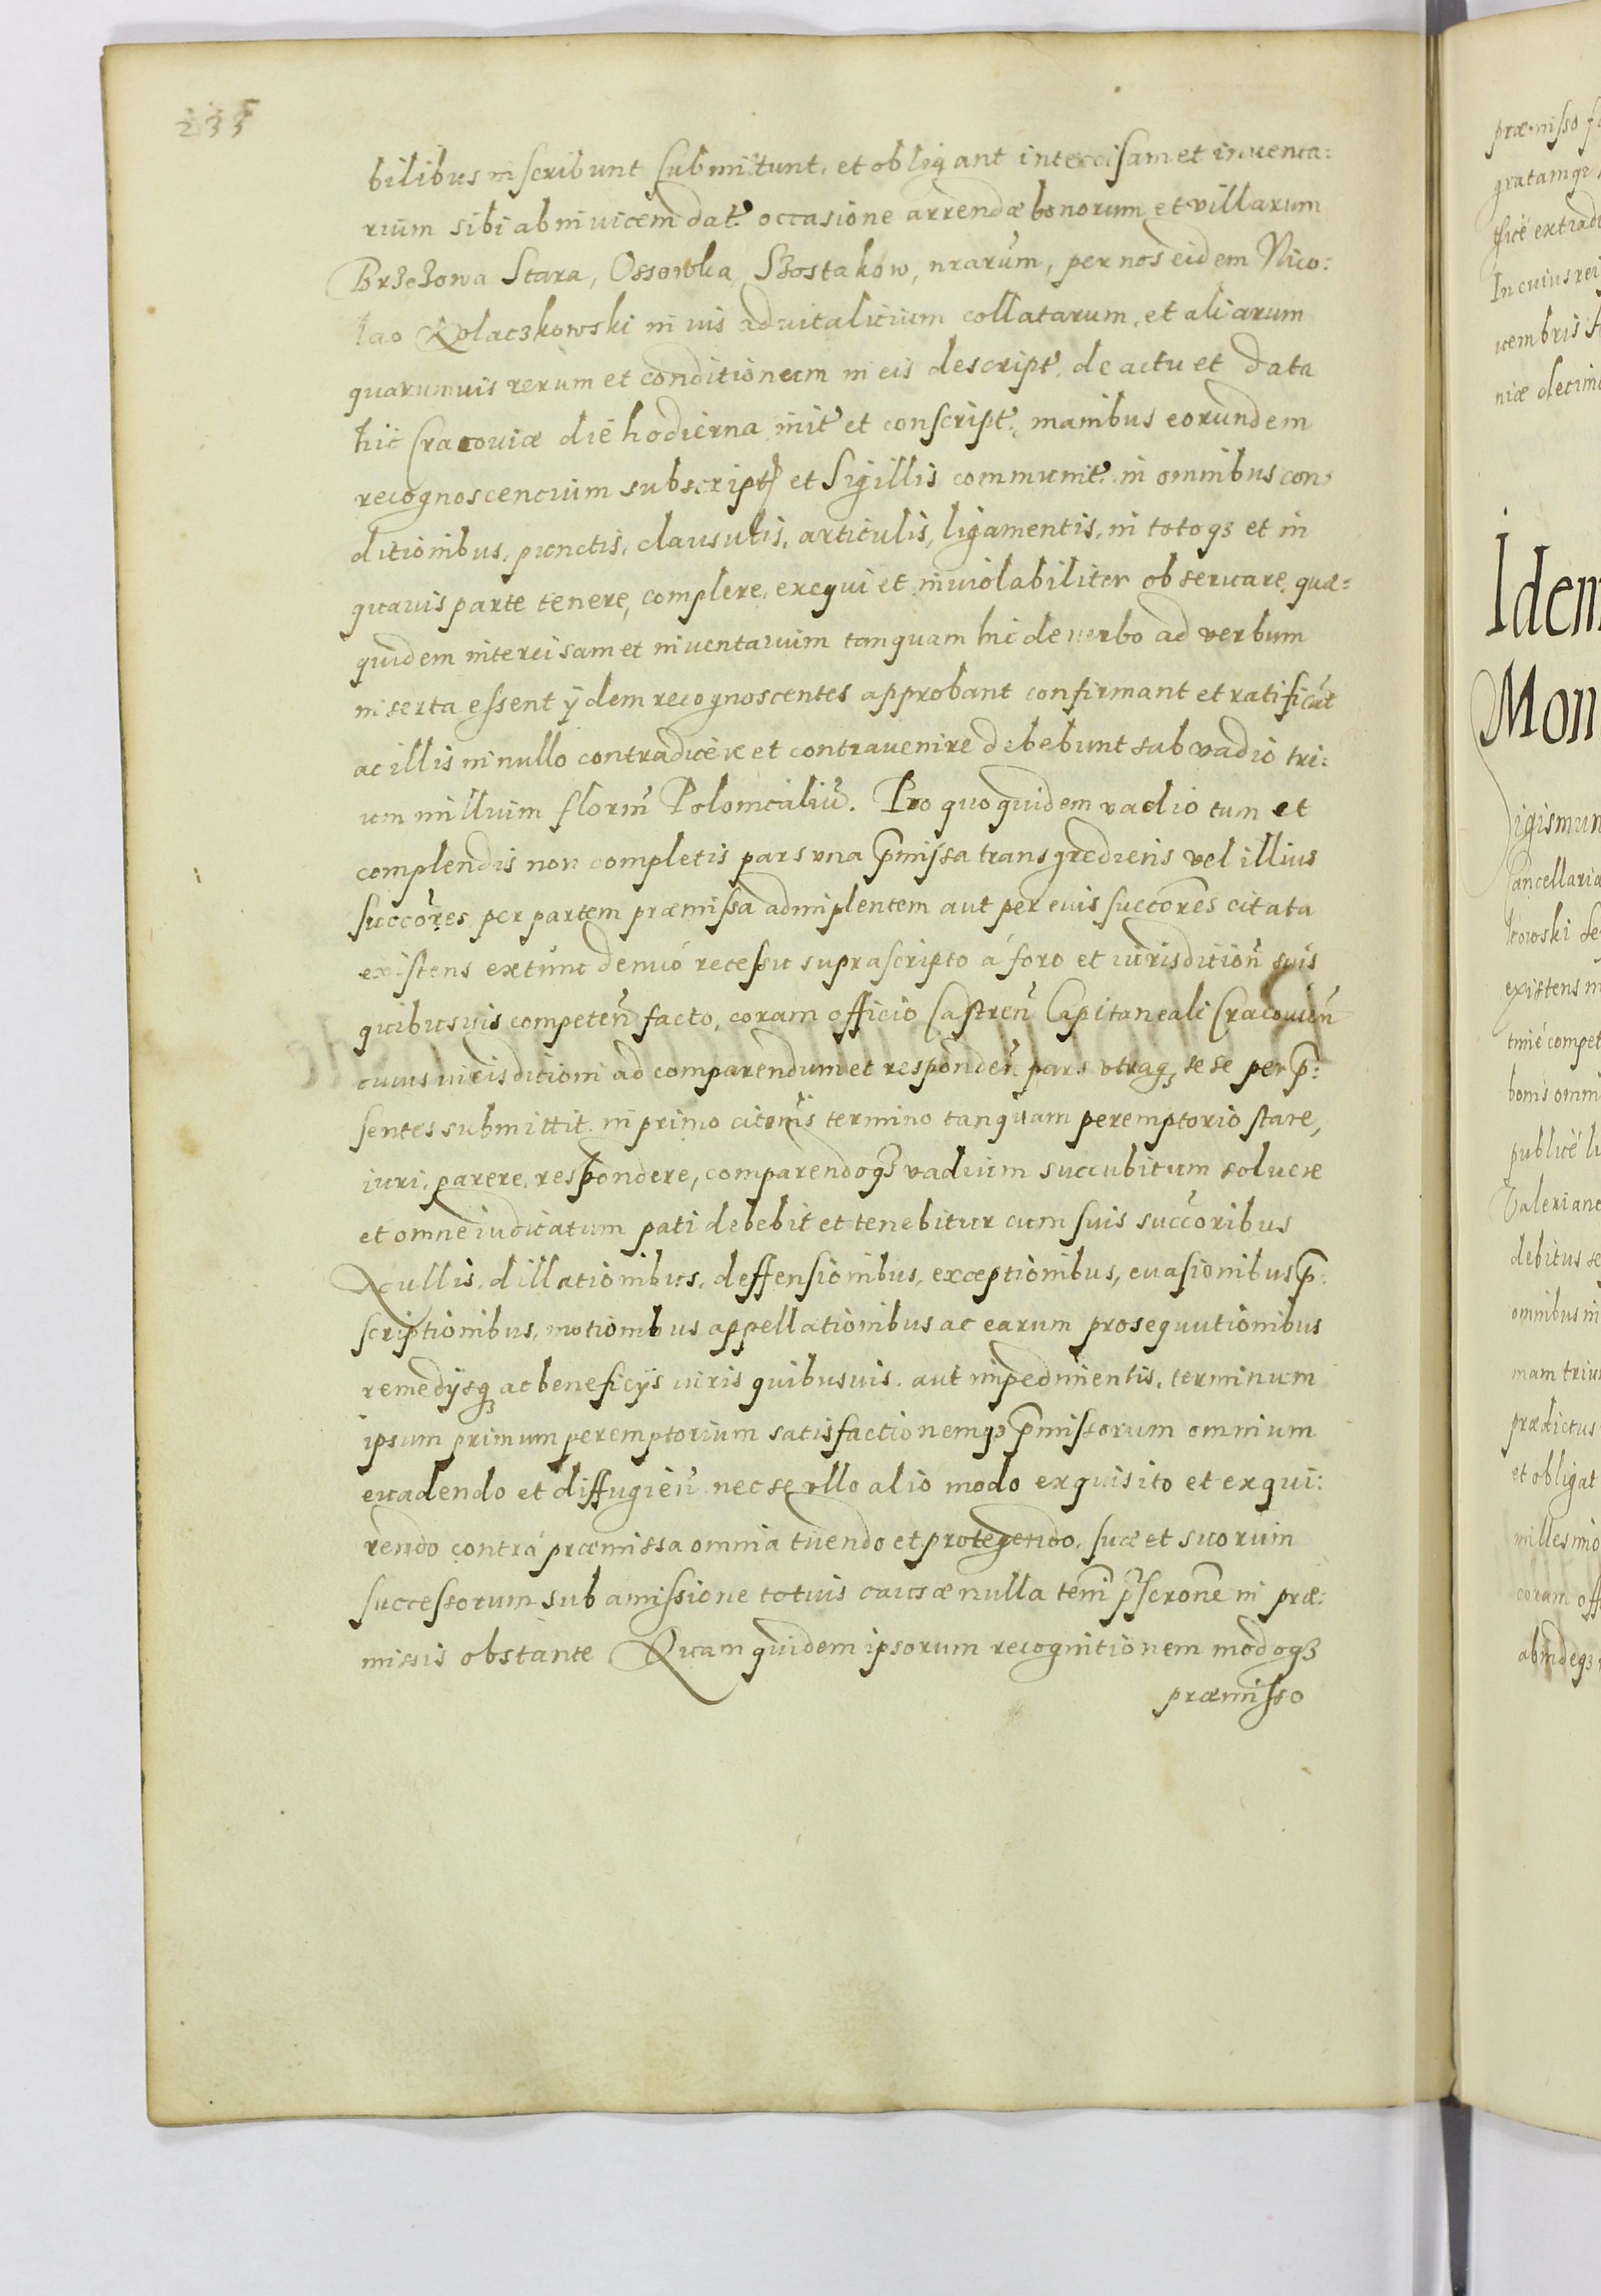 235
bilibus inscribunt submittunt, et obligant intercisam et inuenta:
rium sibi ab inuicem dat. occasione arrendæ bonorum et villarum
Brzezowa Stara, Ossowka, Szostakow, nrarum, per nos eidem Nico:
lao Kolaczkowski in uis aduitalitium collatarum, et aliarum
quarumuis rerum et conditionum in eis descript. de actu et data
hic Cracouiæ die hodierna init. et conscript. manibus eorundem
recognoscentium subscript. et Sigillis communit. in omnibus con:
ditionibus, punctis, clausulis, articulis, ligamentis, in totoqȝ et in
quauis parte tenere, complere, exequi et inuiolabiliter obseruare, quæ=
quidem intercisam et inuentarium tanquam hic de verbo ad verbum
inserta essent ijdem recognoscentes approbant confirmant et ratificãt
ac illis in nullo contradicere et contrauenire debebunt sub vadio tri:
um millium floreñ Polonicaliũ. Pro quo quidem vadio tum et
complendis non completis pars vna p̃missa transgrediens vel illius
succõres per partem præmissa adimplentem aut per euis succõres citata
existens extunc denuó recessu suprascripto á foro et iurisdition̄ suis
quibusuis competen̄ facto, coram officio Castren̄ Capitaneali Cracouien̄
cuius iurisditioni ad comparendum et responden̄ pars vtraqȝ sese per p̃:
sentes submittit. in primo citõnis termino tanquam peremptorio stare,
iuri parere, respondere, comparendoqȝ vadium succubitum soluere
et omne iudicatum pati debebit et tenebitur cum suis succõribus
Nullis dillationibus, deffensionibus, exceptionibus, euasionibus p̃:
scriptionibus, motionibus appellationibus ac earum prosequutionibus
remedijsqȝ ac beneficijs iuris quibusuis aut impedimentis, terminum
ipsum primum peremptorium satisfactionemqȝ p̃missorum omnium
euadendo et diffugien̄ nec se vllo alio modo exquisito et exqui:
rendo contrá præmissa omnia tuendo et protegendo, suæ et suorum
successorum sub amissione totius causæ nulla terñi p̃scrõne in præ:
missis obstante Quam quidem ipsorum recognitionem modoqȝ
præmisso
præmisso
gratamqȝ
In cuius rei
uembris
niæ decimo
Idem
Mon
Sigismun
Cancellaria
kowski
existens in
compet
bonis omni
publicé
Valeriano
debitus
omnibus in
mam trium
prædictus
et obligat
millesimo
coram off
abindeqȝ